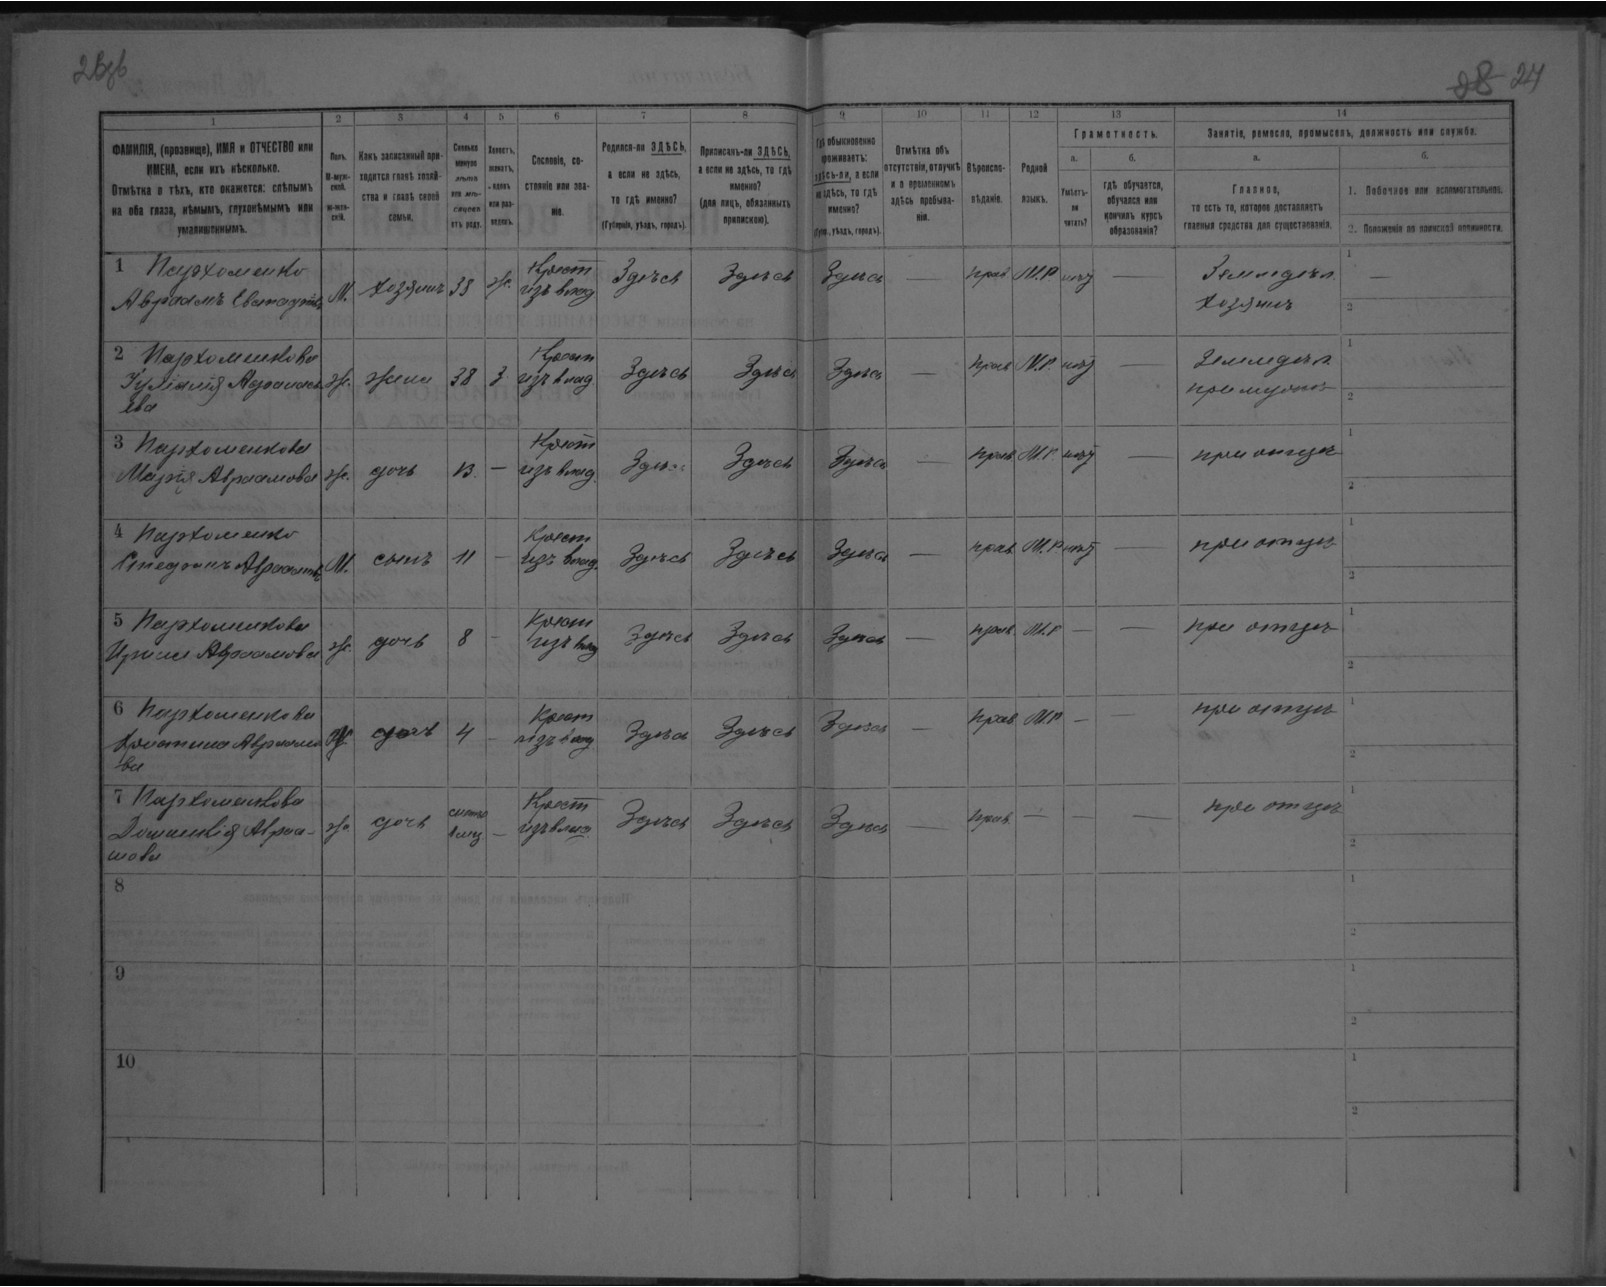 26об
28 24
1 2 3 4 5 6 7 8 9 10 11 12 13 14
ФАМИЛІЯ, (прозвище), ИМЯ и ОТЧЕСТВО или
ИМЕНА, если ихъ нѣсколько.
Отмѣтка о тѣхъ, кто окажется: слѣпымъ
на оба глаза, нѣмымъ, глухонѣмымъ или
умалишеннымъ.
Полъ.
М-муж-
ской.
ж-жен-
скій.
Какъ записанный при-
ходится главѣ хозяй-
ства и главѣ своей
семьи.
Сколько
минуло
лѣтъ
или мѣ-
сяцевъ
отъ роду.
Холостъ,
женатъ,
вдовъ
или раз-
веденъ.
Сословіе, со-
стояніе или зва-
ніе.
Родился-ли ЗДѢСЬ,
а если не здѣсь,
то гдѣ именно?
(Губернія, уѣздъ, городъ).
Приписанъ-ли ЗДѢСЬ,
а если не здѣсь, то гдѣ
именно?
(для лицъ, обязанныхъ
припискою).
Гдѣ обыкновенно
проживаетъ:
здѣсь-ли, а если
не здѣсь, то гдѣ
именно?
(Губ., уѣздъ, городъ).
Отмѣтка объ
отсутствіи, отлучкѣ
и о временномъ
здѣсь пребыва-
ніи.
Вѣроиспо-
вѣданіе.
Родной
языкъ.
Грамотность.
а.
Умѣетъ-
ли
читать?
б.
гдѣ обучается,
обучался или
кончилъ курсъ
образованія?
Занятіе, ремесло, промыселъ, должность или служба.
а.
Главное,
то есть то, которое доставляетъ
главныя средства для существованія.
б.
1. Побочное или вспомогательное.
2. Положеніе по воинской повинности.
1 Пархоменко
Авраамъ М. хозяинъ 39 ж. Крест изъ влад Здѣсь Здѣсь Здѣсь — прав М.Р. нѣт — Земледѣл. хозяинъ 1 — 2
2 Пархоменкова
ж. жена 38 з Крест изъ влад Здѣсь Здѣсь Здѣсь — прав М.Р. нѣт — Земледѣл. при мужѣ 1 2
3 Пархоменкова
Марія Авраамова ж. дочь 13 — Крест изъ влад. Здѣсь Здѣсь Здѣсь — прав М.Р. нѣт — при отцѣ 1 2
4 Пархоменко
М. сынъ 11 — Крест изъ влад. Здѣсь Здѣсь Здѣсь — прав М.Р. нѣт — при отцѣ 1 2
5 Пархоменкова
Ирина Авраамова ж. дочь 8 — Крест изъ влад Здѣсь Здѣсь Здѣсь — прав М.Р — — при отцѣ 1 2
6 Пархоменкова
Христина Авраамо
ва ж дочь 4 — Крест изъ влад Здѣсь Здѣсь Здѣсь — прав М.Р — — при отцѣ 1 2
7 Пархоменкова
Домникія Авраа-
мова ж. дочь — Крест изъ влад. Здѣсь Здѣсь Здѣсь — прав — — — при отцѣ 1 2
8 1 2
9 1 2
10 1 2